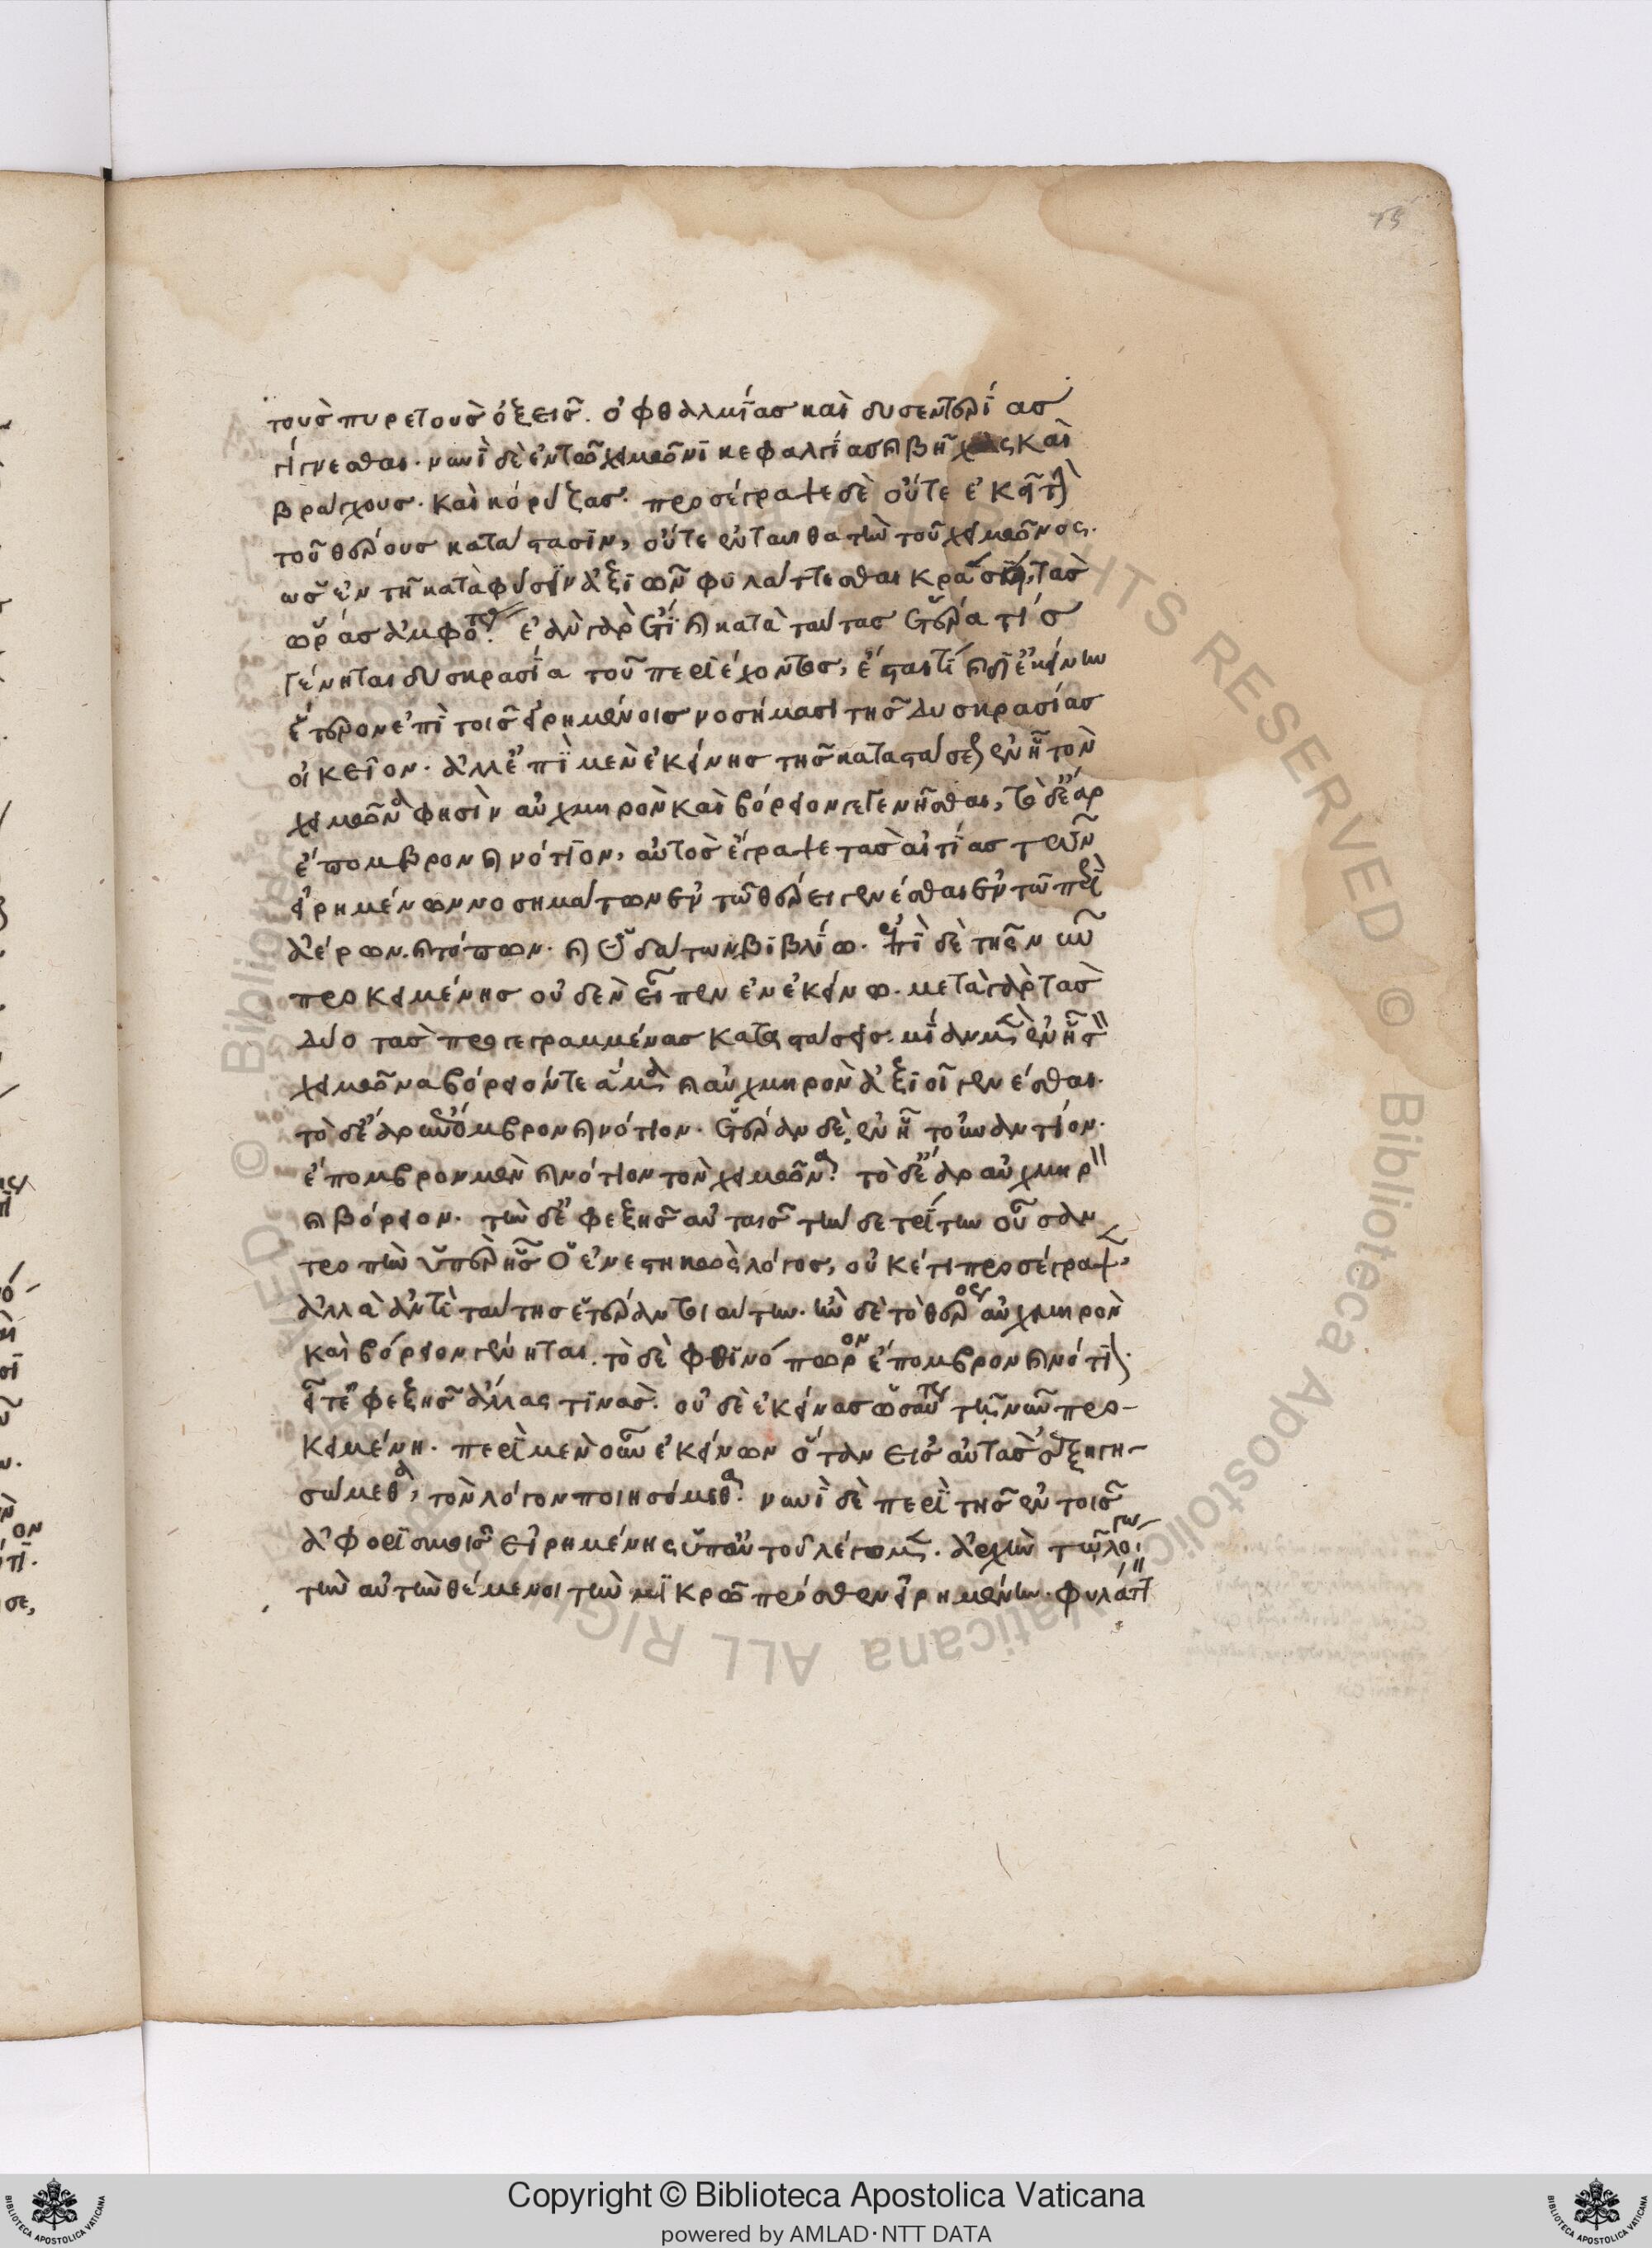 75
τοὺς πυρετοὺς ὀξεῖς. ὀφθαλμίας καὶ δυσεντερίας
γίγνεσθαι. νυνὶ δὲ ἐν τῶ χειμῶνι κεφαλγίας καὶ βῆχας καὶ
βράγχους. καὶ κόρυζας. προσέγραψε δὲ οὔτε ἐκεῖ τὴν
τοῦ θέρους κατάστασιν, οὔτε ἐνταυθα τὴν τοῦ χειμῶνος.
ὡς ἐν τῆ κατὰ φύσιν ἀξιῶν φυλάττεσθαι κράσει, τὰς
ὥρας ἀμφοτέρας. ἐὰν γὰρ ἔτι καὶ κατὰ ταύτας ἑτέρα τίς
γένηται δυσκρασία τοῦ περιέχοντος, ἔσται τί καὶ δι ἐκείνην
ἕτερον ἐπὶ τοῖς εἰρημένοις νοσήμασι τῆς δυσκρασίας
οἰκεῖον. ἀλλ ἐπὶ μὲν ἐκείνης τῆς καταστάσεως ἐν ἧ τὸν
χειμῶνα φησὶν αὐχμηρὸν καὶ βόρειον γεγενῆσθαι, τὸ δὲ ἔαρ
ἔπομβρον καὶ νότιον, αὐτὸς ἔγραψε τὰς αἰτίας τῶν
εἰρημένων νοσημάτων ἐν τῶ θέρει γενέσθαι ἐν τῶ περὶ
ἀέρων. καὶ τόπων. καὶ ὑδάτων βιβλίω. ἐπὶ δὲ τῆς νῦν
προκειμένης οὐδὲν εἶπεν ἐν ἐκείνω. μετὰ γὰρ τὰς
δύο τὰς προγεγραμμένας καταστάσεις. μίαν μὲν ἐν ἧ τὸν
χειμῶνα βόρειόν τε ἅμα καὶ αὐχμηρὸν ἀξιοῖ γενέσθαι.
τὸ δὲ ἔαρ αὖ ὄμβρον καὶ νότιον. ἑτέραν δὲ, ἐν ἧ τοὐναντίον.
ἔπομβρον μὲν καὶ νότιον τὸν χειμῶνα. τὸ δὲ ἔαρ αὐχμηρὸν
καὶ βόρειον. τὴν δ ἐφεξῆς αὐταῖς τὴν δε τρίτην οὖσαν
προ τὴν ὑπὲρ ἧς ὁ ἐνεστηκὼς λόγος, οὐκέτι προσέγραψεν,
ἀλλὰ ἀντὶ ταύτης ἑτέραν τοιαύτην. ἢν δὲ τὸ θέρος αὐχμηρὸν
καὶ βόρειον γένηται. τὸ δὲ φθινόπωρον ἔπομβρον καὶ νότιον.
εἶτ ἐφεξῆς ἄλλας τινὰς. οὐδὲ ἐκείνας ὡσαύτως τῆ νῦν προ-
κειμένη. περὶ μὲν οὖν ἐκείνων ὅταν εἰς αὐτὰς ἐξηγη-
σώμεθα, τὸν λόγον ποιησόμεθα. νυνὶ δὲ περὶ τῆς ἐν τοῖς
ἀφορισμοῖς εἰρημένης ὑπ αὐτοῦ λέγωμεν. ἀρχὴν τῶ λόγω
τὴν αὐτὴν θέμενοι τὴν μικρῶ πρόσθεν εἰρημένην. φυλάττ
Copyright © Biblioteca Apostolica Vaticana
powered by AMLAD·NTT DATA